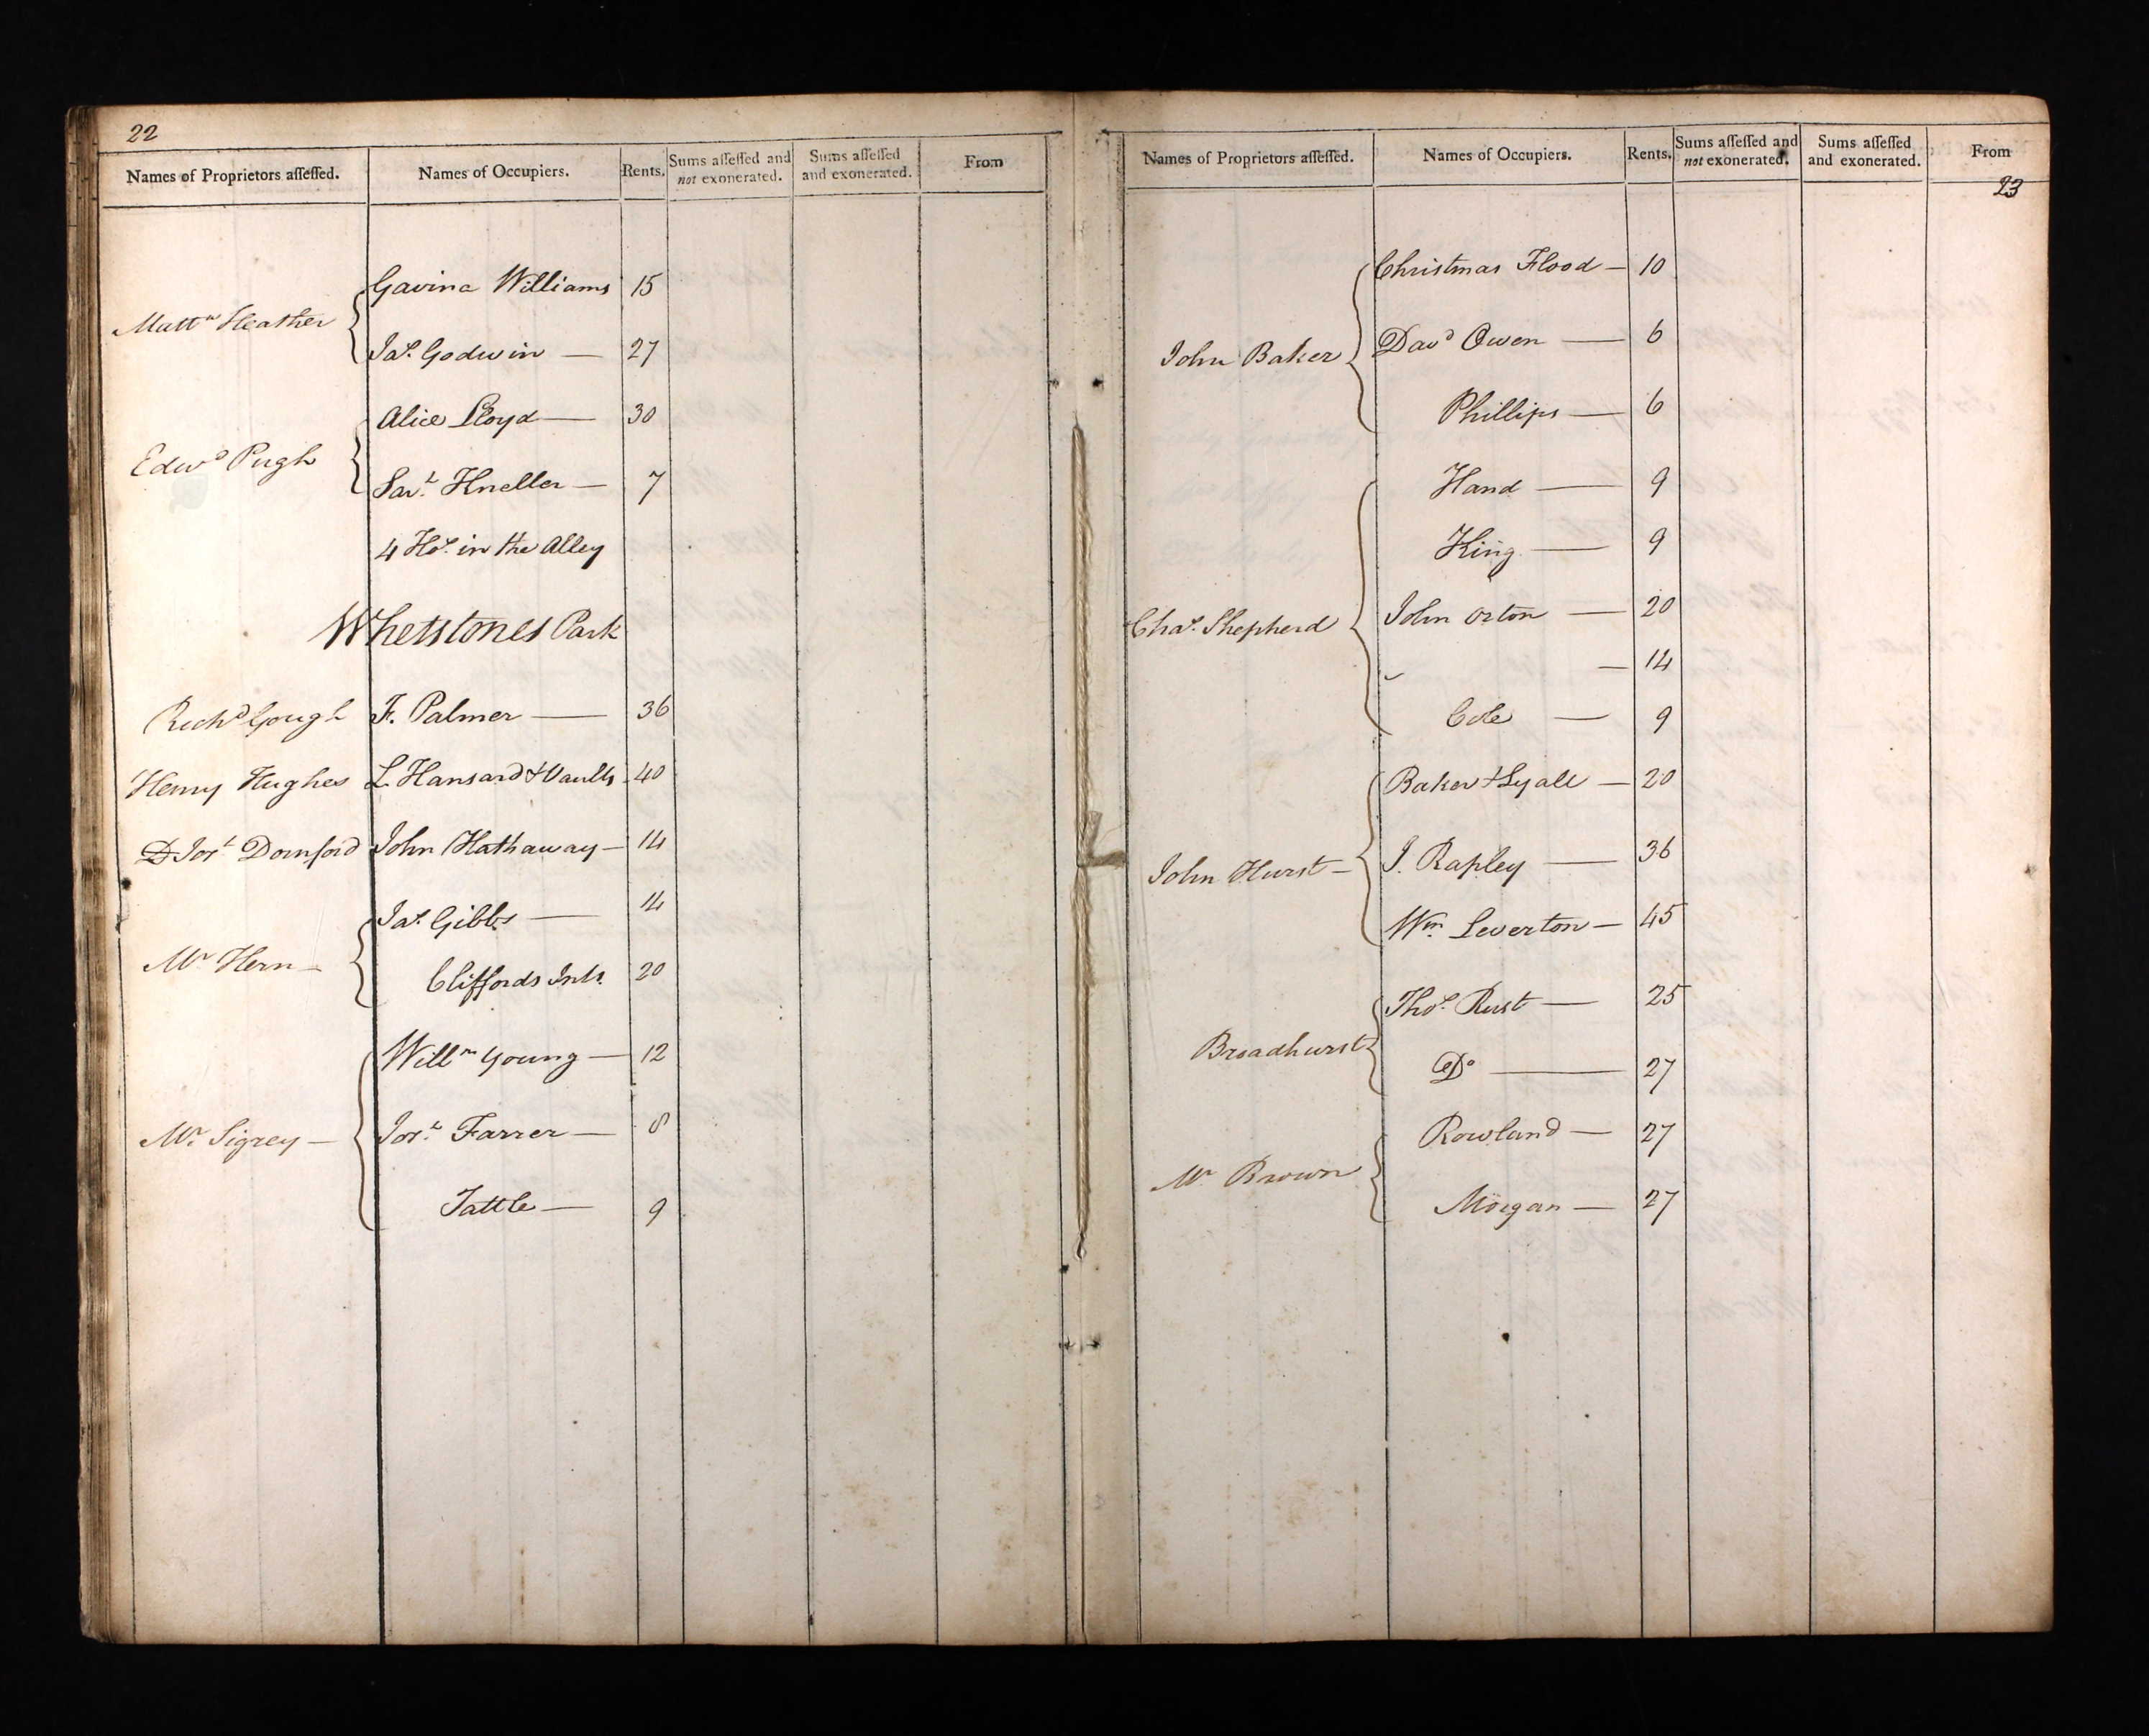 22
Names of Proprietors aſſeſſed. Names of Occupiers. Rents. Sums aſſeſſed and not exonerated. Sums aſſeſſed and exonerated. From
Mattw Heather Gavina Williams 15
Jas. Godwin — 27
Edwd Pugh Alice Lloyd — 30
Sarh. Kneller — 7
4 Hos. in the Alley
Whetstones Park
Richd Gough F. Palmer — 36
Henry Hughes L. Hansard & Vaults 40
Josh Dornford John Hathaway — 14
Mr Hern — Jas. Gibbs — 14
Cliffords 20
Mr. Sigrey — Willm Young — 12
Josh. Farrer — 8
Tattle — 9
Names of Proprietors aſſeſſed. Names of Occupiers. Rents. Sums aſſeſſed and not exonerated. Sums aſſeſſed and exonerated. From
23
John Baker Christmas Flood — 10
Davd Owen — 6
Phillips — 6
Chas. Shepherd Hand — 9
King — 9
John Orton — 20
— 14
Cole — 9
John Hurst — Baker & Lyall — 20
J. Rapley — 36
Wm. Leverton — 45
Broadhurst Thos. Rust — 25
Do — 27
Mr Brown Rowland — 27
Morgan — 27